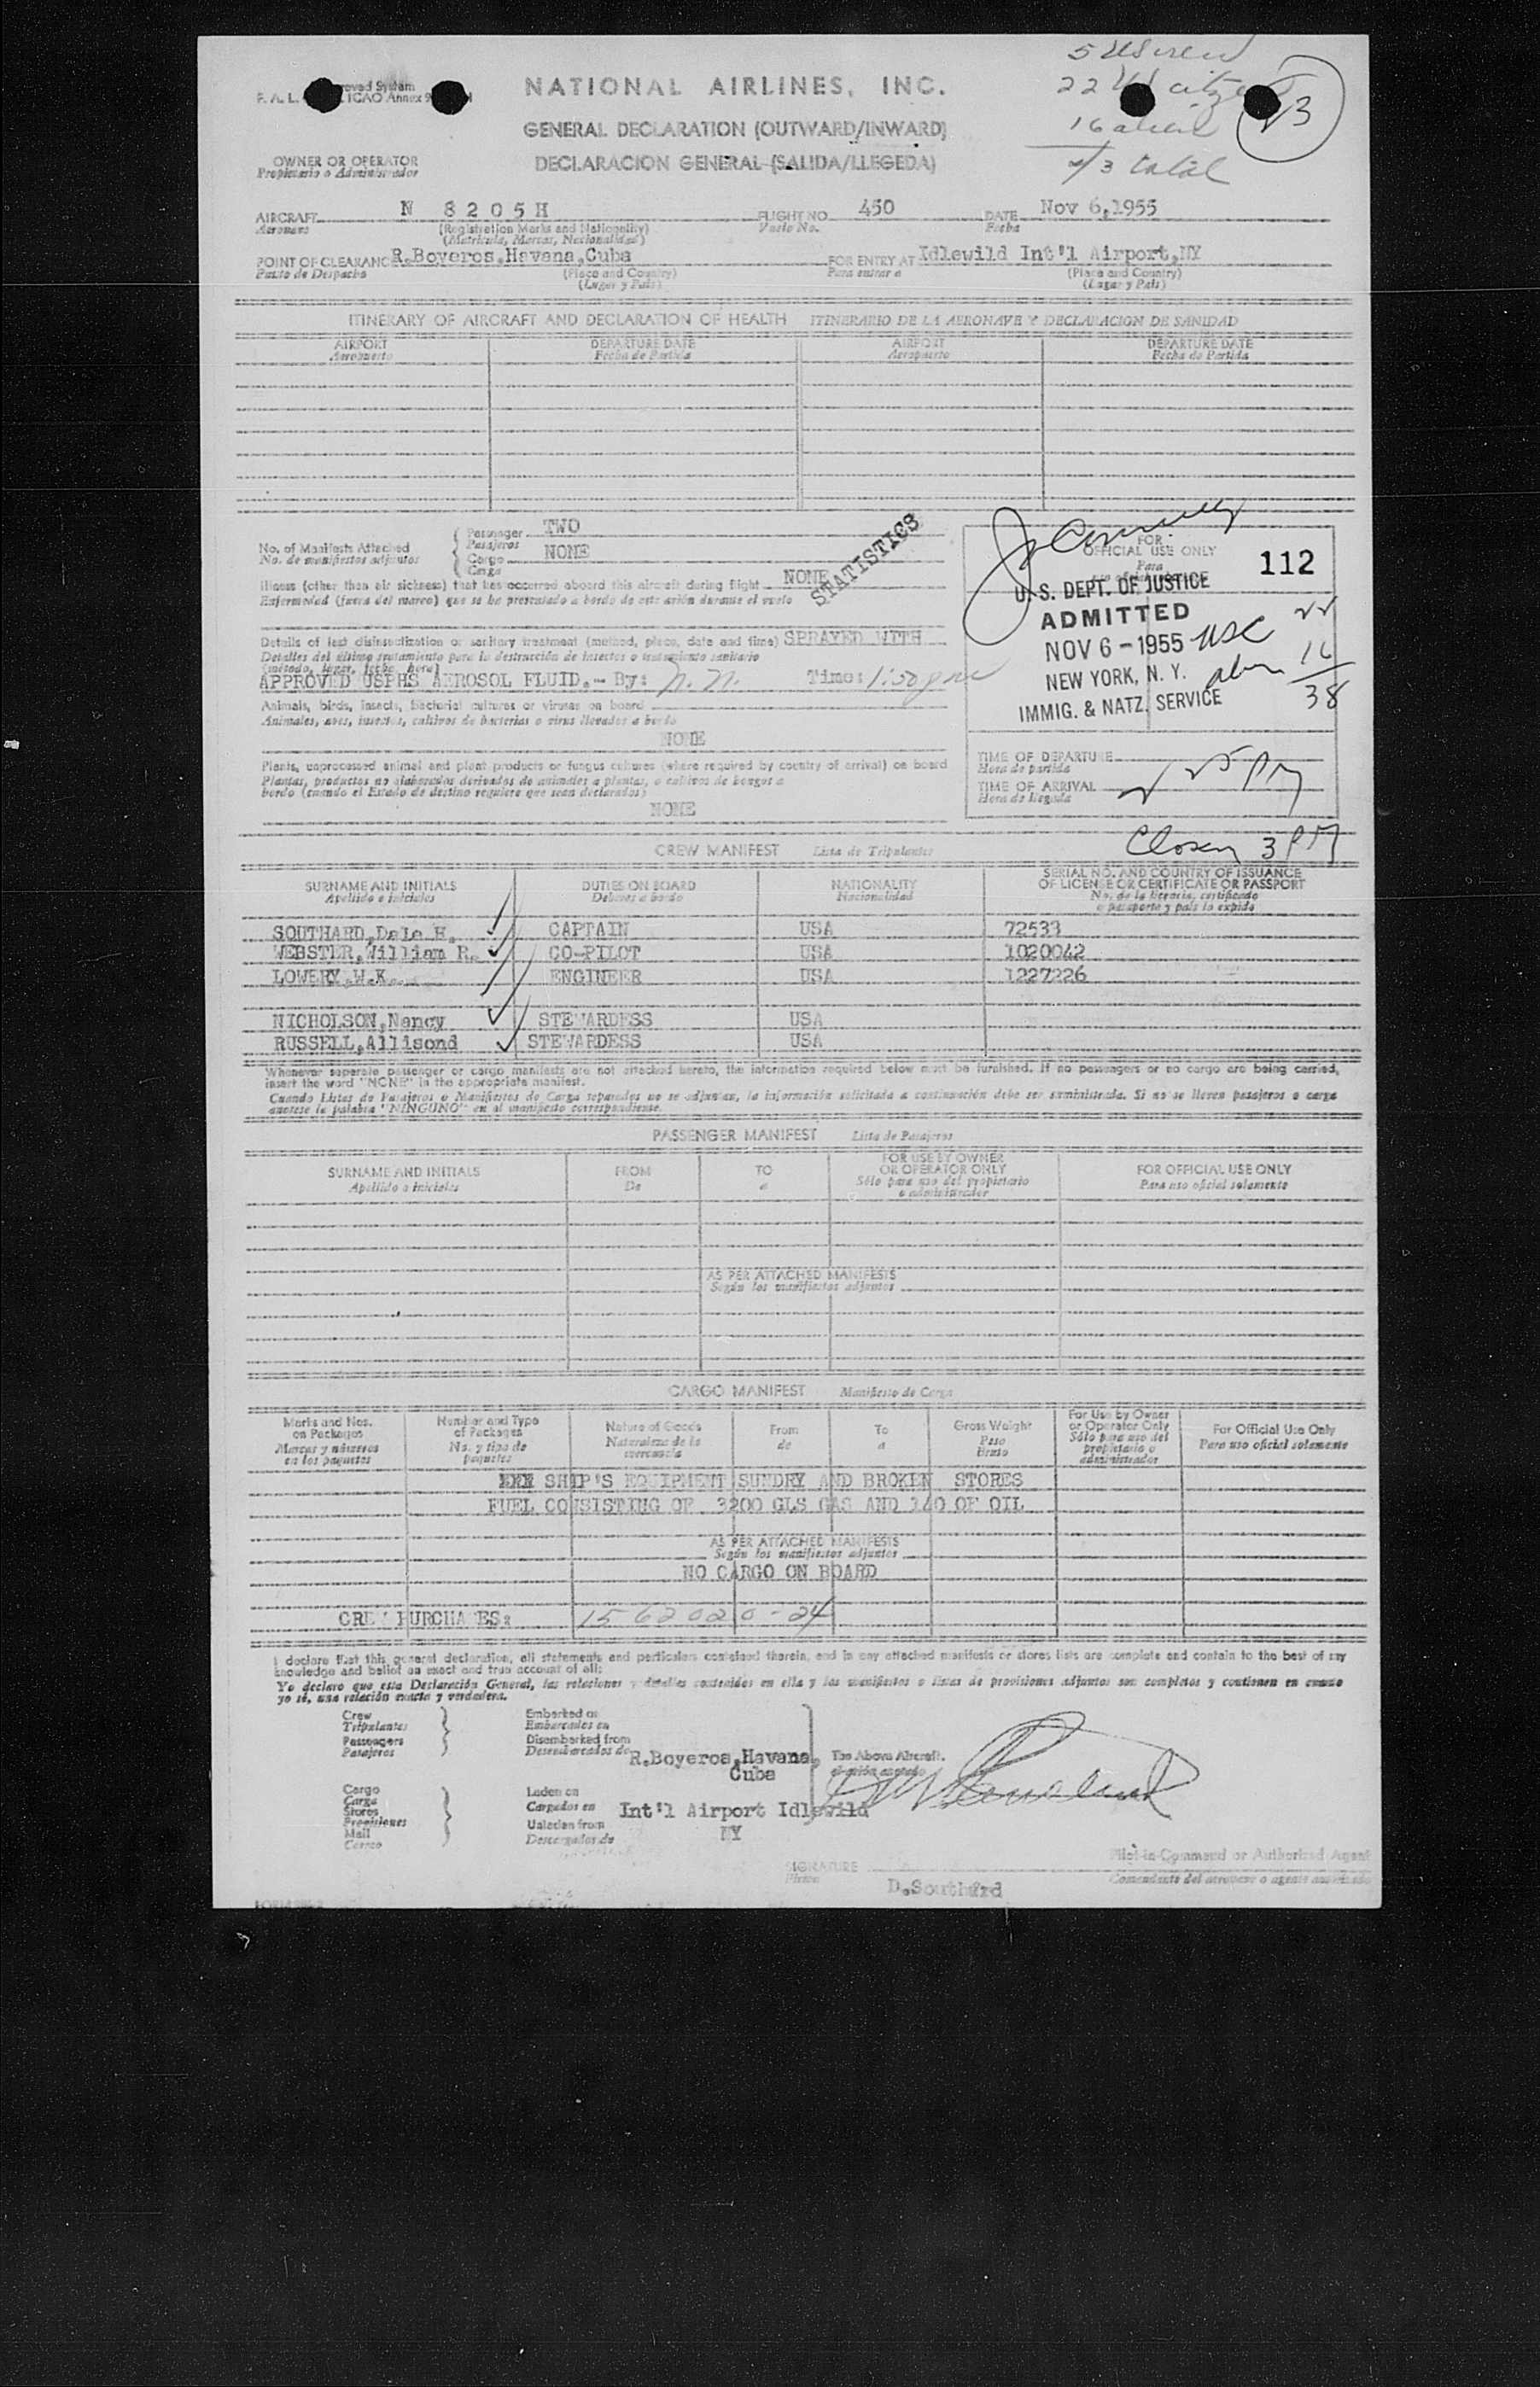 5 US crew
22 US citizens
16 alien
43 total
43
Approved System
F. A. L. ICAO Annex 9
NATIONAL AIRLINES, INC.
GENERAL DECLARATION (OUTWARD/INWARD)
OWNER OR OPERATOR
Propietario o Administrador
DECLARACION GENERAL (SALIDA/LLEGEDA)
AIRCRAFT N 8205H FLIGHT NO. 450 DATE Nov 6,1955
Aeronave (Registration Marks and Nationality) Vuelo No. Fecha
(Matricula, Marcas, Nacionalidad)
POINT OF CLEARANC R.Boyeros,Havana,Cuba FOR ENTRY AT Idlewild Int'l Airport,NY
Punto de Despacho (Place and Country) Para entrar a (Place and Country)
(Lugar y Pais) (Lugar y Pais)
ITINERARY OF AIRCRAFT AND DECLARATION OF HEALTH ITINERARIO DE LA AERONAVE Y DECLARACION DE SANIDAD
AIRPORT DEPARTURE DATE AIRPORT DEPARTURE DATE
Aeropuerto Fecha de Partida Aeropuerto Fecha de Partida
No. of Manifests Attached
No. de manifiestos adjuntos
Passenger TWO
Pasajeros
Cargo NONE
Carga
STATISTICS
Illness (other than air sickness) that has occurred aboard this aircraft during flight NONE
Enfermedad (fuera del mareo) que se ha presentado a bordo de este avión durante el vuelo
Details of last disinsectization or sanitary treatment (method, place, date and time) SPRAYED WITH
Detalles del último tratamiento para la destrucción de insectos o tratamiento sanitario
(método, lugar, fecha, hora)
APPROVED USPHS AEROSOL FLUID.- By: N.N. Time: 1:50 pm
Animals, birds, insects, bacterial cultures or viruses on board
Animales, aves, insectos, cultivos de bacterias o virus llevados a bordo
NONE
Plants, unprocessed animal and plant products or fungus cultures (where required by country of arrival) on board
Plantas, productos no elaborados derivados de animales o plantas, o cultivos de hongos a
bordo (cuando el Estado de destino requiere que sean declarados)
NONE
FOR
OFFICIAL USE ONLY
Para
112
U. S. DEPT. OF JUSTICE
ADMITTED
NOV 6 - 1955 USC 22
NEW YORK, N. Y. alien 16
IMMIG. & NATZ. SERVICE 38
TIME OF DEPARTURE
Hora de partida
TIME OF ARRIVAL 2 25 PM
Hora de llegada
Closed 3 PM
CREW MANIFEST Lista de Tripulantes
SURNAME AND INITIALS DUTIES ON BOARD NATIONALITY SERIAL NO. AND COUNTRY OF ISSUANCE
OF LICENSE OR CERTIFICATE OR PASSPORT
Apellido e iniciales Deberes a bordo Nacionalidad No. de la licencia, certificado
o pasaporte y pais lo expide
SOUTHARD,Dale H. CAPTAIN USA 72533
WEBSTER,William R. CO-PILOT USA 1020042
LOWERY,W.K. ENGINEER USA 1227226
NICHOLSON,Nancy STEWARDESS USA
RUSSELL,Allisond STEWARDESS USA
Whenever seperate passenger or cargo manifests are not attached hereto, the information required below must be furnished. If no passengers or no cargo are being carried,
insert the word "NONE" in the appropriate manifest.
Cuando Listas de Pasajeros o Manifiestos de Carga separados no se adjuntan, la información solicitada a continuación debe ser suministrada. Si no se lleven pasajeros o carga
anotese la palabra "NINGUNO" en el manifiesto correspondiente.
PASSENGER MANIFEST Lista de Pasajeros
SURNAME AND INITIALS FROM TO FOR USE BY OWNER
OR OPERATOR ONLY FOR OFFICIAL USE ONLY
Apellido e iniciales De a Sólo para uso del propietario
o administrador Para uso oficial solamente
AS PER ATTACHED MANIFESTS
Según los manifiestos adjuntos
CARGO MANIFEST Manifiesto de Carga
Marks and Nos.
on Packages
Marcas y números
en los paquetes
Number and Type
of Packages
No. y tipo de
paquetes
Nature of Goods
Naturaleza de la
mercancia
From
de
To
a
Gross Weight
Peso
Bruto
For Use by Owner
or Operator Only
Sólo para uso del
propietario o
administrador
For Official Use Only
Para uso oficial solamente
SHIP'S EQUIPMENT SUNDRY AND BROKEN STORES
FUEL CONSISTING OF 3200 GLS GAS AND 140 OF OIL
AS PER ATTACHED MANIFESTS
Según los manifiestos adjuntos
NO CARGO ON BOARD
CREW PURCHASES: 1562020-24
I declare that this general declaration, all statements and particulars contained therein, and in any attached manifests or stores lists are complete and contain to the best of my
knowledge and belief an exact and true account of all:
Yo declaro que esta Declaración General, las relaciones y detalles contenidos en ella y los manifiestos o listas de provisiones adjuntos son completos y contienen en cuanto
yo sé, una relación exacta y verdadera.
Crew
Tripulantes
Passengers
Pasajeros
Embarked on
Embarcados en
Disembarked from
Desembarcados de R.Boyeros,Havana,
Cuba
The Above Aircraft.
el avión anotado
Cargo
Carga
Stores
Provisiones
Mail
Correo
Laden on
Cargados en Int'l Airport Idlewild
Unladen from NY
Descargados de
Pilot-in-Command or Authorized Agent
SIGNATURE
Firma
Comandante del aeronave o agente autorizado
D.Southard